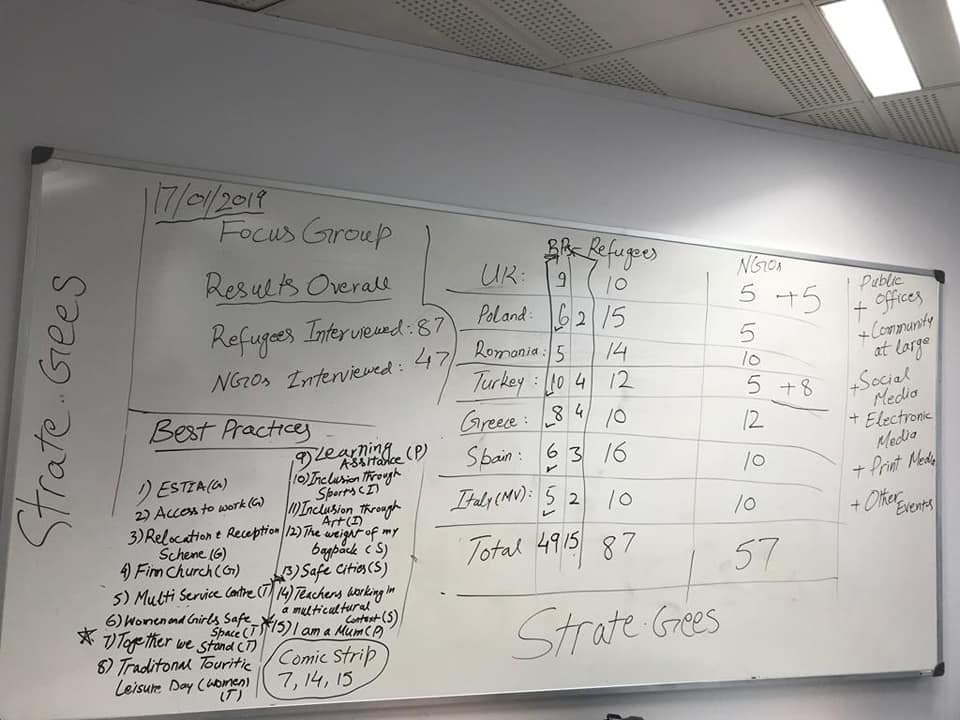 Strate.Gees
17/01/2019
Focus Group
Results Overall
Refugees Interviewed: 87
NGOs Interviewed: 47
Best Practices
1) ESTIA(G)
2) Access to work(G)
3) Relocation & Reception
Scheme(G)
4) Finn Church(G)
5) Multi Service Centre(T)
6) Women and Girls Safe
Space(T)
7) Together we
Stand(T)
8) Traditonal Touritic
Leisure Day (women)
(T)
9) Learning
Assitance(P)
10) Inclusion through
Sports(I)
11) Inclusion through
Art(I)
12) The weight of my
bagback(S)
13) Safe Cities(S)
14) Teachers working in
a multicultural
Context(S)
15) I am a Mum(P)
Comic Strip
7, 14, 15
BPs Refugees NGOs
UK: 9 10 5 +5
Poland: 6 2 15 5
Romania: 5 14 10
Turkey: 10 4 12 5 +8
Greece: 8 4 10 12
Spain: 6 3 16 10
Italy(MV): 5 2 10 10
Total 49 15 87 57
Public
+ offices
+ Community
at large
+ Social
Media
+ Electronic
Media
+ Print Media
+ Other
Events
Strate.Gees